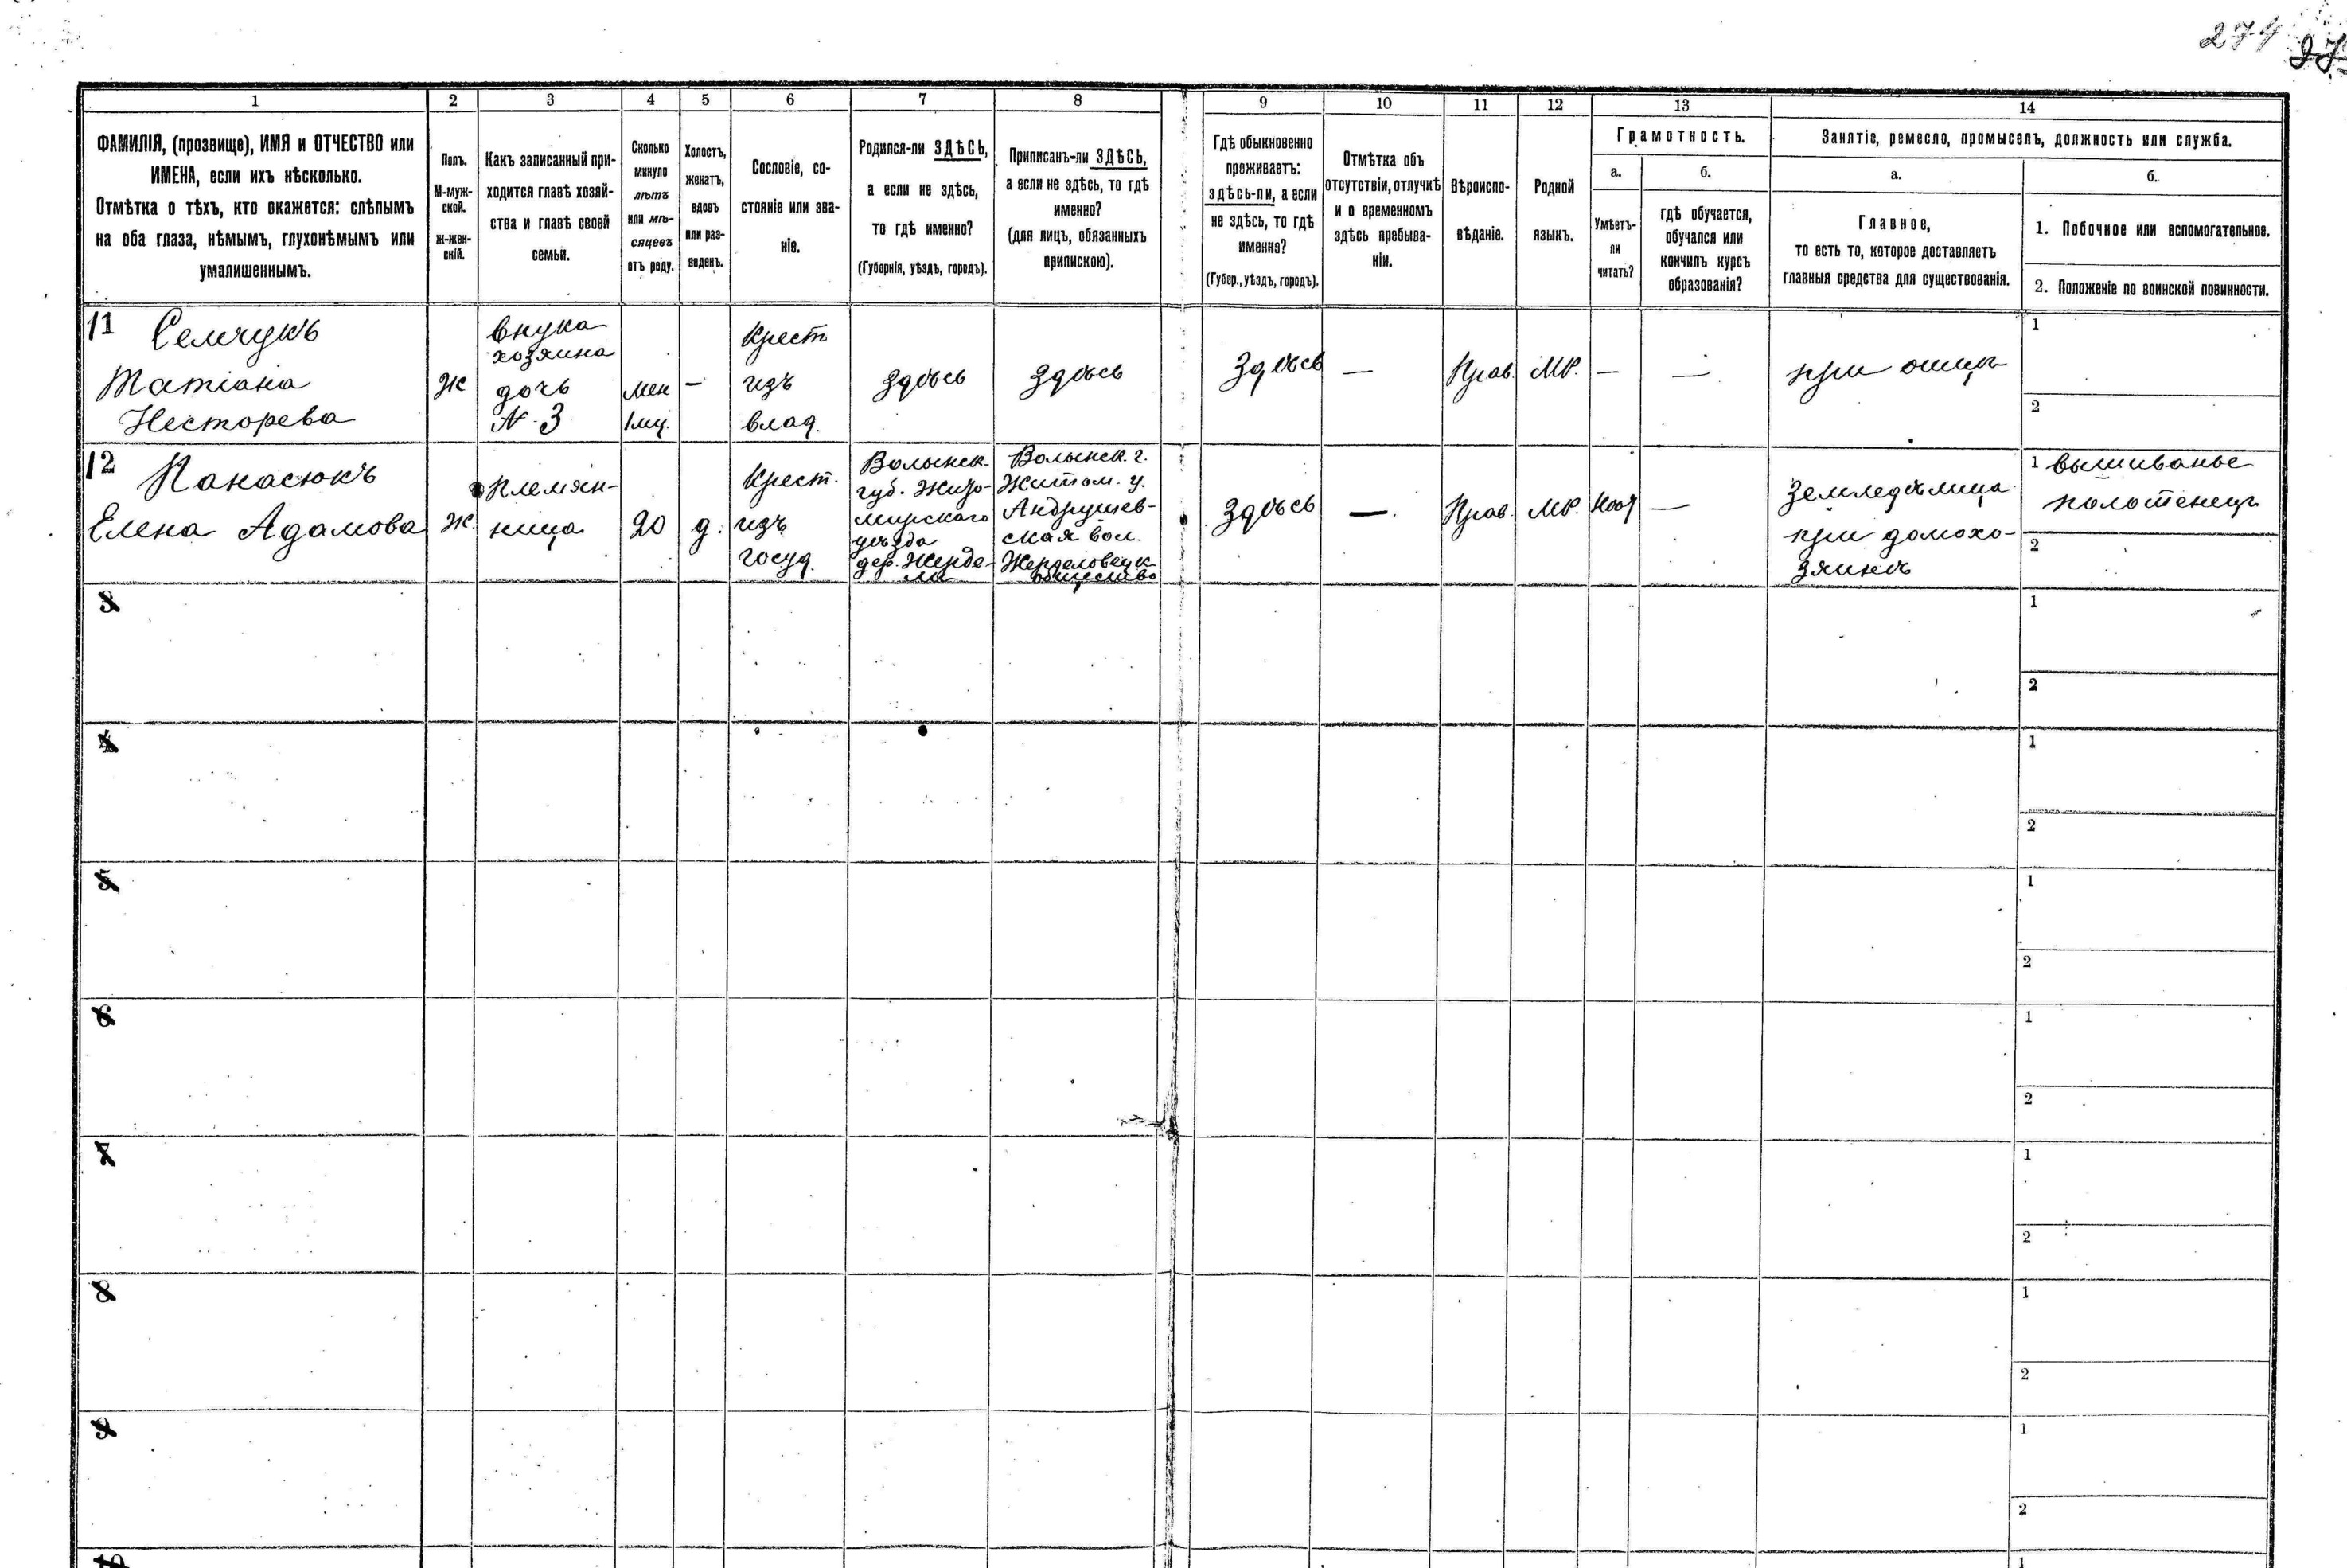 274
1
2
3
4
5
6
7
8
9
10
11
12
13
14
ФАМИЛІЯ, (прозвище), ИМЯ и ОТЧЕСТВО или
ИМЕНА, если ихъ нѣсколько.
Отмѣтка о тѣхъ, кто окажется: слѣпымъ
на оба глаза, нѣмымъ, глухонѣмымъ или
умалишеннымъ.
Полъ.
М-муж-
ской.
ж-жен-
скій.
Какъ записанный при-
ходится главѣ хозяй-
ства и главѣ своей
семьи.
Сколько
минуло
лѣтъ
или мѣ-
сяцевъ
отъ роду.
Холостъ,
женатъ,
вдовъ
или раз-
веденъ.
Сословіе, со-
стояніе или зва-
ніе.
Родился-ли ЗДѢСЬ,
а если не здѣсь,
то гдѣ именно?
(Губернія, уѣздъ, городъ).
Приписанъ-ли ЗДѢСЬ,
а если не здѣсь, то гдѣ
именно?
(для лицъ, обязанныхъ
припискою).
Гдѣ обыкновенно
проживаетъ:
здѣсь-ли, а если
не здѣсь, то гдѣ
именно?
(Губер., уѣздъ, городъ).
Отмѣтка объ
отсутствіи, отлучкѣ
и о временномъ
здѣсь пребыва-
ніи.
Вѣроиспо-
вѣданіе.
Родной
языкъ.
Грамотность.
а.
Умѣетъ-
ли
читать?
б.
гдѣ обучается,
обучался или
кончилъ курсъ
образованія?
Занятіе, ремесло, промыселъ, должность или служба.
а.
Главное,
то есть то, которое доставляетъ
главныя средства для существованія.
б.
1. Побочное или вспомогательное.
2. Положеніе по воинской повинности.
11
Семчукъ
Татіана
Несторева
Ж
внука
хозяина
дочь
N. 3
мен
1 мц.
—
Крест
изъ
влад.
здѣсь
здѣсь
здѣсь
—
Прав.
МР.
—
—
при отцѣ
1
2
12
Панасюкъ
Елена Адамова
Ж.
племян-
ница
20
д.
Крест.
изъ
госуд.
Волынск.
губ. Жито-
мирскаго
уѣзда
дер. Жерде-
ли
Волынск. г.
Житом. у.
Андрушев-
ская вол.
Жерделовецк
общество
здѣсь
—.
Прав.
МР.
—
Земледѣлица
при домохо-
зяинѣ
1 вышиванье
полотенецъ
2
3
1
2
4
1
2
5
1
2
6
1
2
7
1
2
8
1
2
9
1
2
10
1